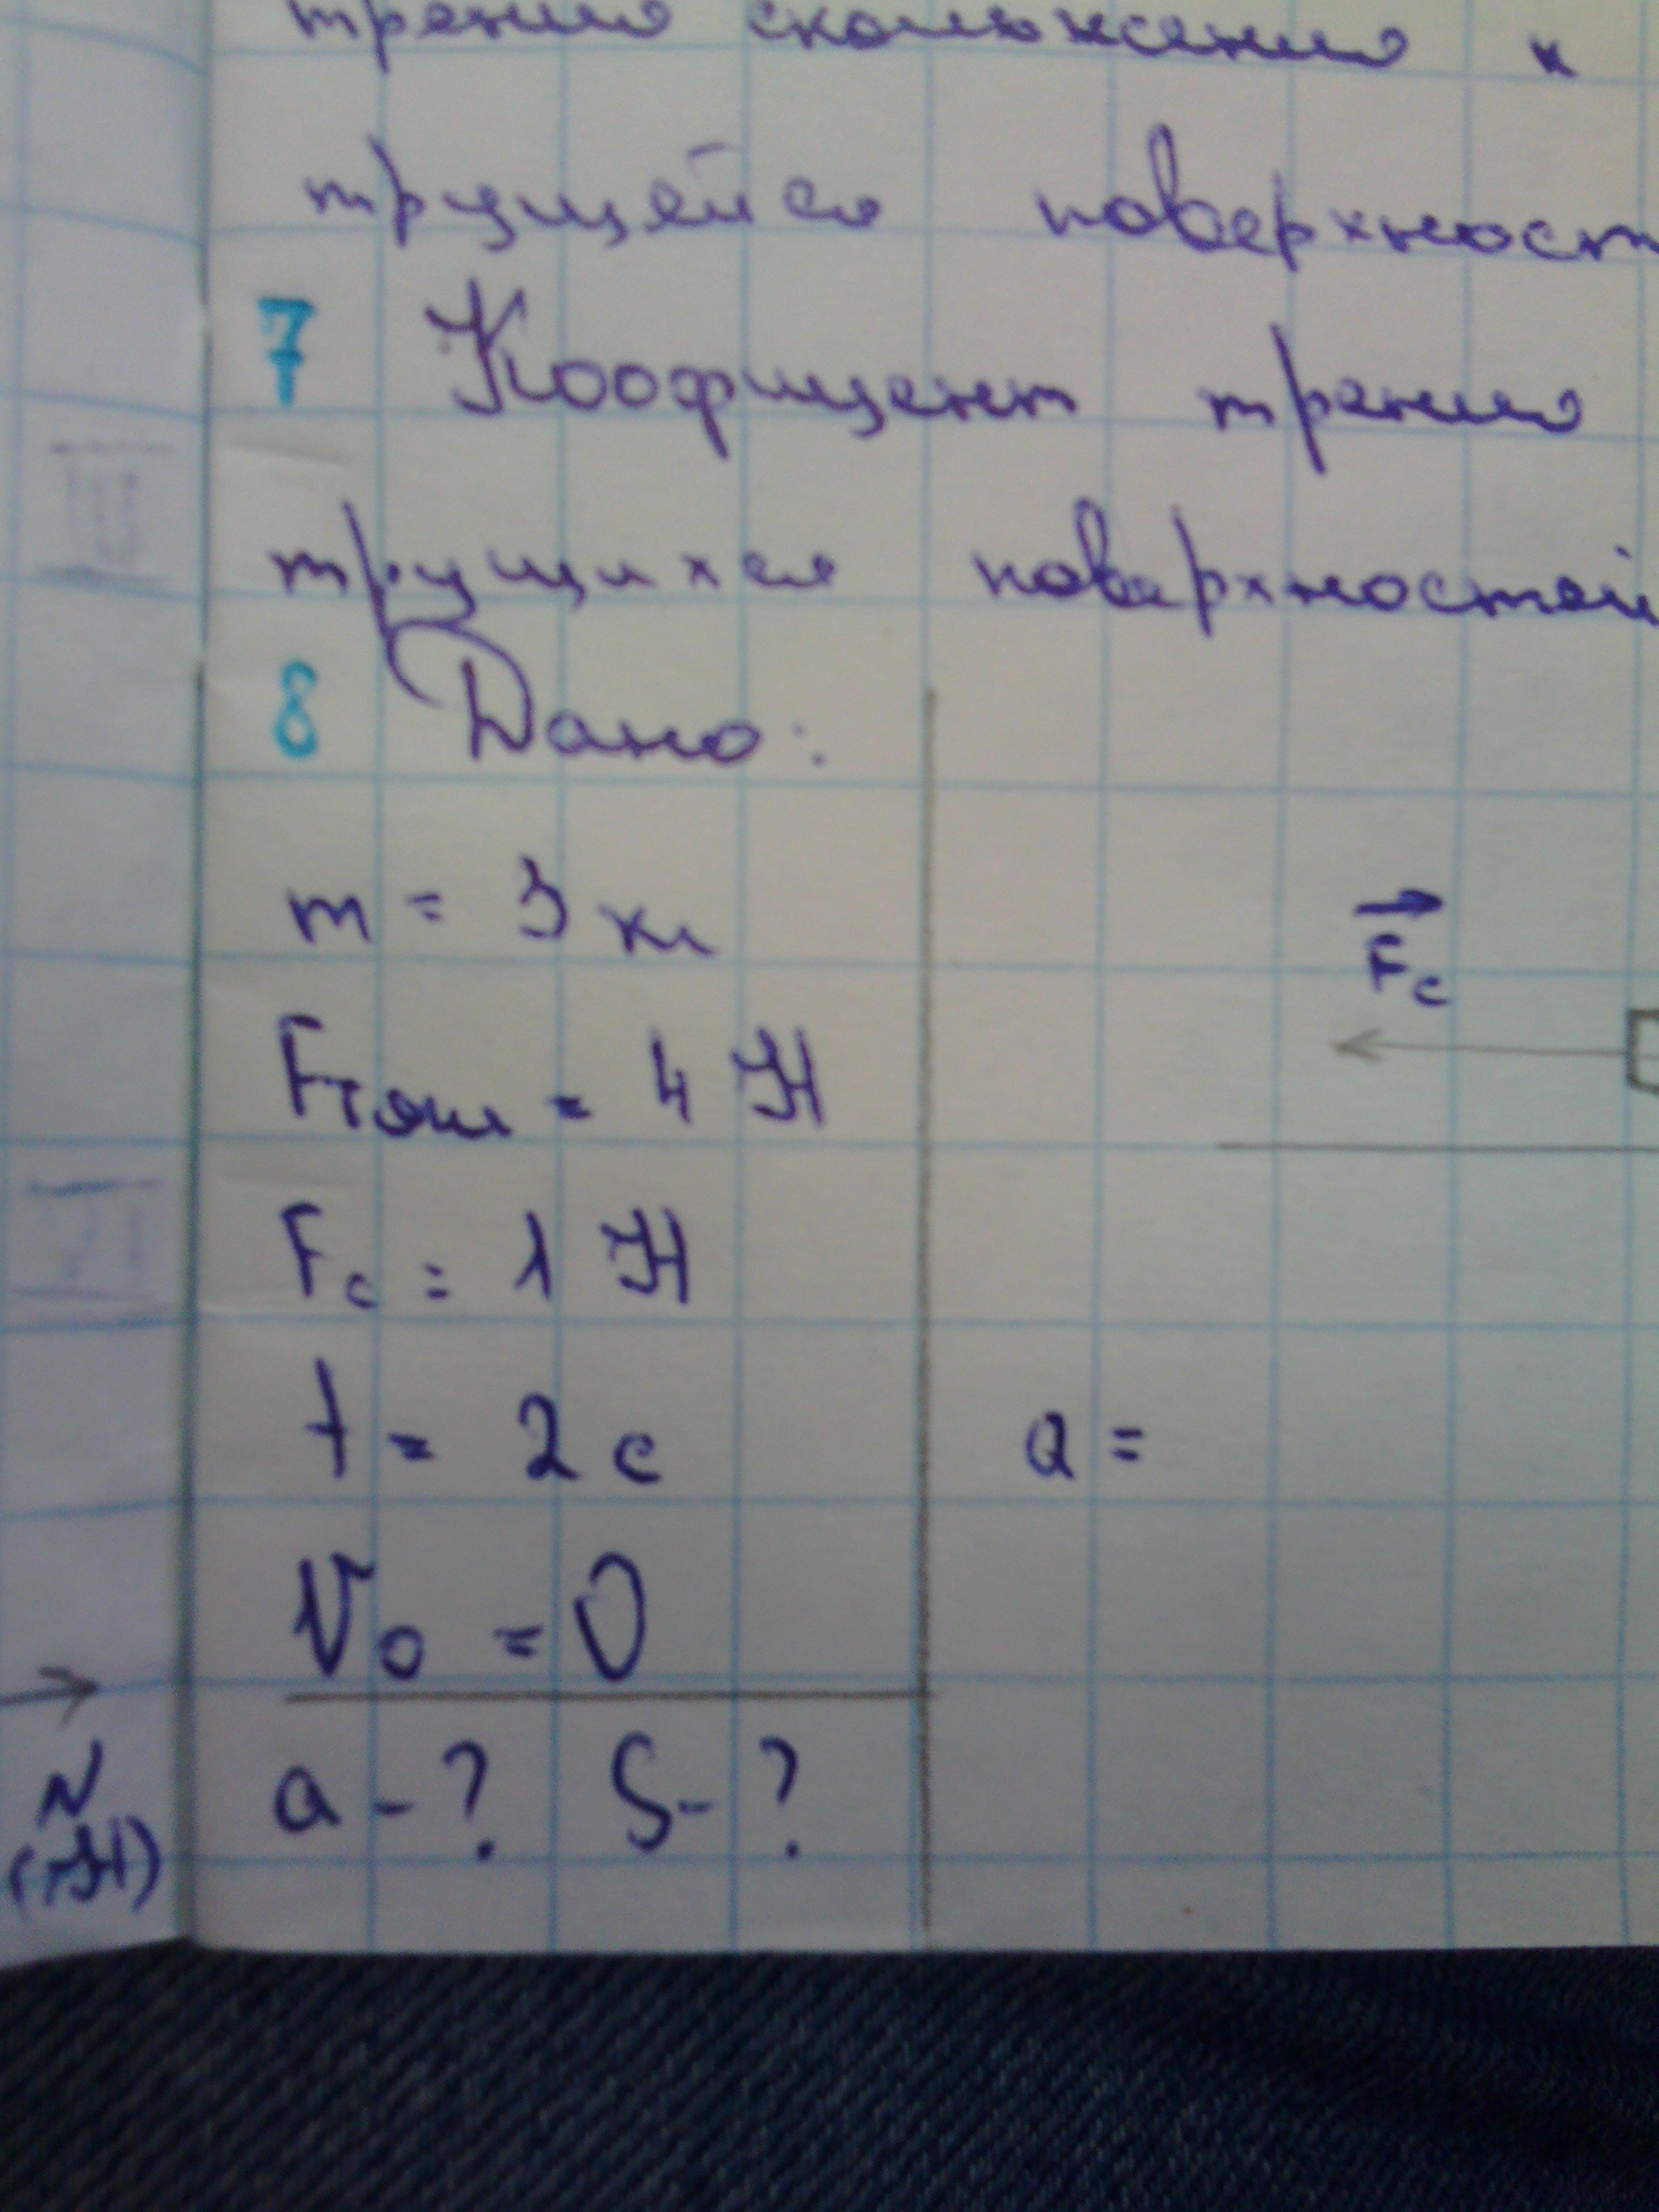 трения скольжения к
трущейся поверхност
7 Коофициент трения
трущихся поверхностей
8 Дано:
m = 3 кг
Fтяги = 4 Н
Fс = 1 Н
t = 2 с
V₀ = 0
a - ? S - ?
Fс
a =
N
(Н)